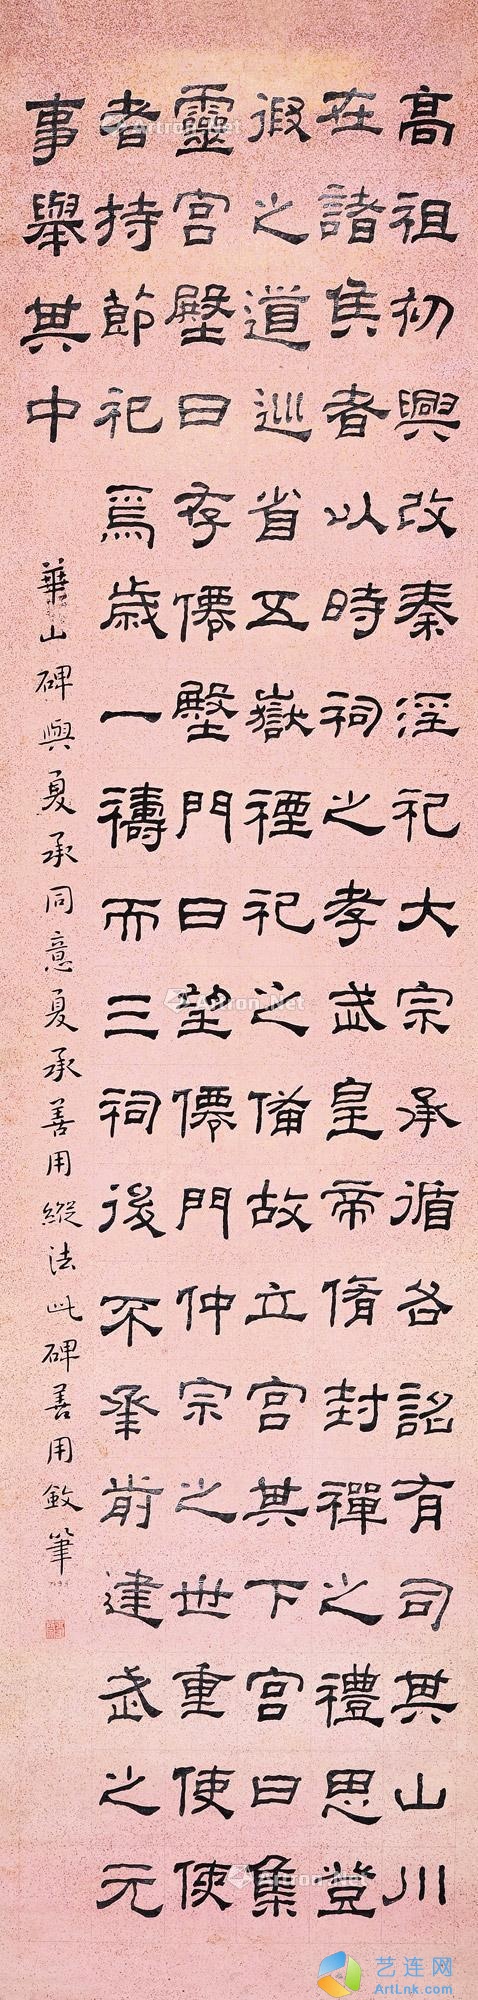 高祖初興改秦淫祀大宗承循各詔有司其山川
在諸侯者以時祠之孝武皇帝脩封禪之禮思登
徦之道巡省五嶽禋祀之備故立宮其下宮曰集
靈宮壂曰存僊壂門曰望僊門仲宗之世重使使
者持節祀焉歲一禱而三祠後不承前建武之元
事舉其中
華山碑與夏承同意夏承善用縱法此碑善用斂筆
Artron.Net
Artron.Net
Artron.Net
Artron.Net
艺连网
ArtLnk.com